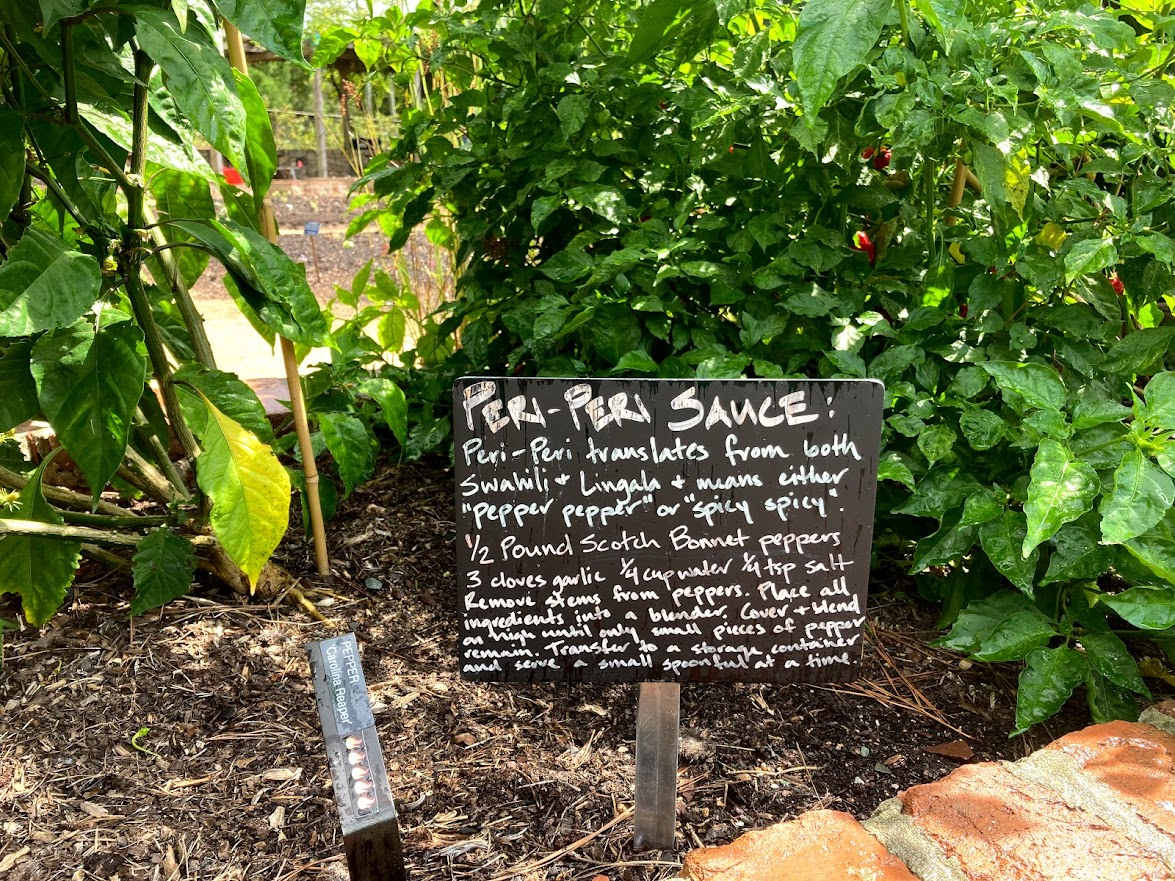 PERI-PERI SAUCE:
Peri-Peri translates from both
Swahili + Lingala + means either
"pepper pepper" or "spicy spicy".
1/2 Pound Scotch Bonnet peppers
3 cloves garlic 1/4 cup water 1/4 tsp salt
Remove stems from peppers. Place all
ingredients into a blender. Cover + blend
on high until only small pieces of pepper
remain. Transfer to a storage container
and serve a small spoonful at a time.
PEPPER
'Carolina Reaper'